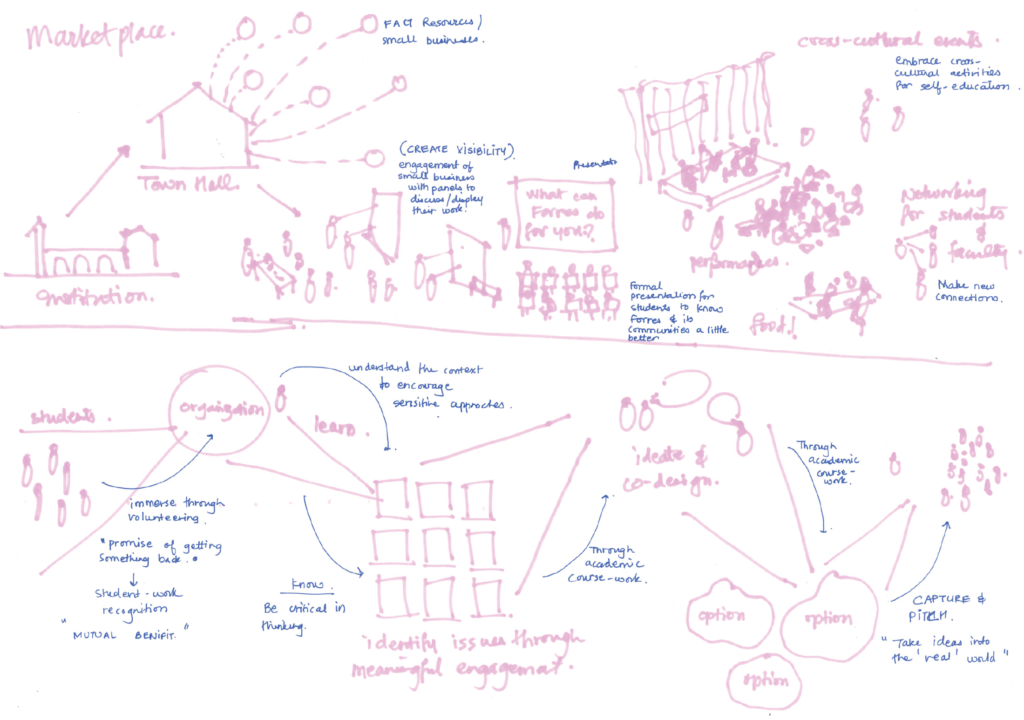 Marketplace.
FACT Resources/
small businesses.
cross-cultural events.
Embrace cross-
cultural activities
for self-education.
(CREATE VISIBILITY)
engagement of
small business
with panels to
discuss/display
their work.
Town Hall.
Institution.
What can
Forres do
for you?
Formal
presentation for
students to know
Forres & its
communities a little
better
performances.
food!
Networking
for students
& faculty.
Make new
connections.
students.
organization
understand the context
to encourage
sensitive approaches.
learn.
immerse through
volunteering.
"promise of getting
something back."
student-work
recognition
"MUTUAL BENIFIT."
Know.
Be critical in
thinking.
identify issues through
meaningful engagemat.
Through
academic
course-work.
ideate &
co-design.
Through
academic
course-
work.
option
option
option
CAPTURE &
PITCH.
"Take ideas into
the 'real' world"